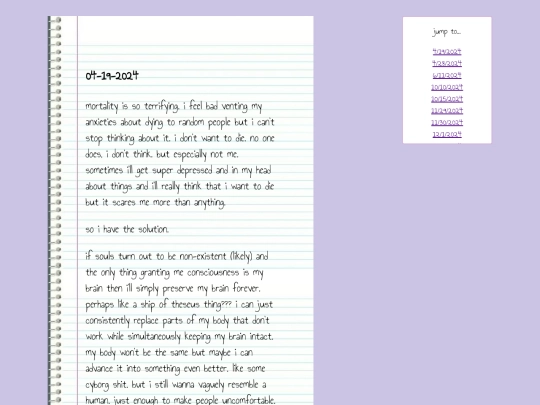 04-19-2024
mortality is so terrifying. i feel bad venting my
anxieties about dying to random people but i can't
stop thinking about it. i don't want to die. no one
does, i don't think. but especially not me.
sometimes ill get super depressed and in my head
about things and i'll really think that i want to die
but it scares me more than anything.
so i have the solution.
if souls turn out to be non-existent (likely) and
the only thing granting me consciousness is my
brain then i'll simply preserve my brain forever.
perhaps like a ship of theseus thing??? i can just
consistently replace parts of my body that don't
work while simultaneously keeping my brain intact.
my body won't be the same but maybe i can
advance it into something even better. like some
cyborg shit. but i still wanna vaguely resemble a
human. just enough to make people uncomfortable.
jump to...
4/24/2024
4/28/2024
6/11/2024
10/10/2024
10/15/2024
11/24/2024
11/30/2024
12/1/2024